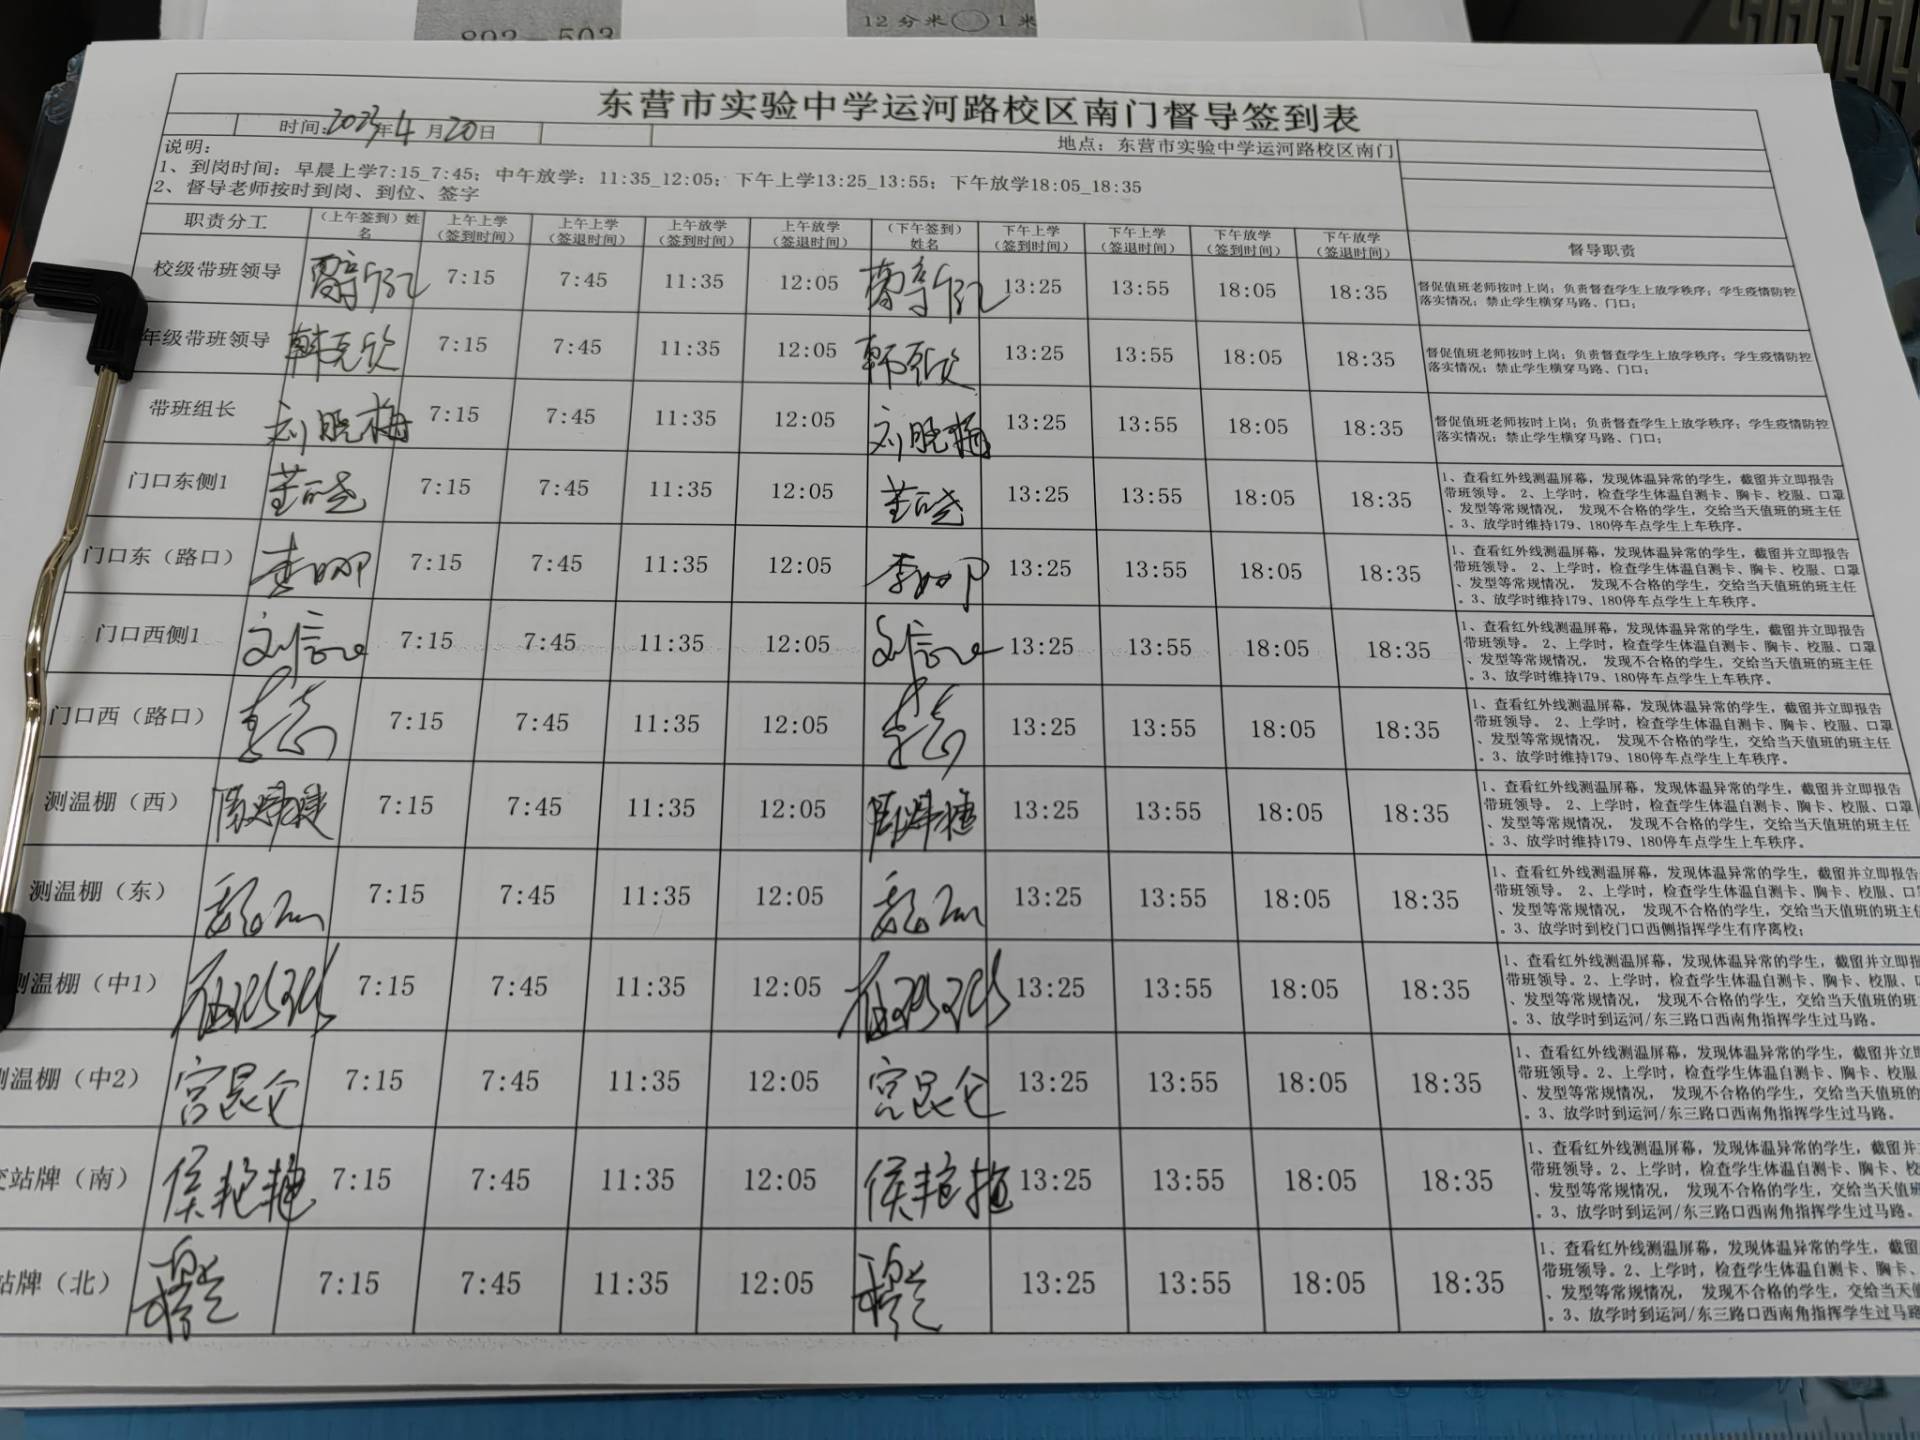 892-503
12分米 1米
东营市实验中学运河路校区南门督导签到表
时间:2023年4月20日
地点：东营市实验中学运河路校区南门
说明:
1、到岗时间：早晨上学7:15_7:45；中午放学：11:35_12:05；下午上学13:25_13:55；下午放学18:05_18:35
2、督导老师按时到岗、到位、签字
职责分工 （上午签到）姓名 上午上学（签到时间） 上午上学（签退时间） 上午放学（签到时间） 上午放学（签退时间） （下午签到）姓名 下午上学（签到时间） 下午上学（签退时间） 下午放学（签到时间） 下午放学（签退时间） 督导职责
校级带班领导 7:15 7:45 11:35 12:05 13:25 13:55 18:05 18:35
督促值班老师按时上岗；负责督查学生上放学秩序；学生疫情防控
落实情况；禁止学生横穿马路、门口；
年级带班领导 7:15 7:45 11:35 12:05 13:25 13:55 18:05 18:35
督促值班老师按时上岗；负责督查学生上放学秩序；学生疫情防控
落实情况；禁止学生横穿马路、门口；
带班组长 刘晓梅 7:15 7:45 11:35 12:05 刘晓梅 13:25 13:55 18:05 18:35
督促值班老师按时上岗；负责督查学生上放学秩序；学生疫情防控
落实情况；禁止学生横穿马路、门口；
门口东侧1 7:15 7:45 11:35 12:05 13:25 13:55 18:05 18:35
1、查看红外线测温屏幕，发现体温异常的学生，截留并立即报告
带班领导。 2、上学时，检查学生体温自测卡、胸卡、校服、口罩
、发型等常规情况， 发现不合格的学生，交给当天值班的班主任
。3、放学时维持179、180停车点学生上车秩序。
门口东（路口） 7:15 7:45 11:35 12:05 13:25 13:55 18:05 18:35
1、查看红外线测温屏幕，发现体温异常的学生，截留并立即报告
带班领导。 2、上学时，检查学生体温自测卡、胸卡、校服、口罩
、发型等常规情况， 发现不合格的学生，交给当天值班的班主任
。3、放学时维持179、180停车点学生上车秩序。
门口西侧1 7:15 7:45 11:35 12:05 13:25 13:55 18:05 18:35
1、查看红外线测温屏幕，发现体温异常的学生，截留并立即报告
带班领导。 2、上学时，检查学生体温自测卡、胸卡、校服、口罩
、发型等常规情况， 发现不合格的学生，交给当天值班的班主任
。3、放学时维持179、180停车点学生上车秩序。
门口西（路口） 7:15 7:45 11:35 12:05 13:25 13:55 18:05 18:35
1、查看红外线测温屏幕，发现体温异常的学生，截留并立即报告
带班领导。 2、上学时，检查学生体温自测卡、胸卡、校服、口罩
、发型等常规情况， 发现不合格的学生，交给当天值班的班主任
。3、放学时维持179、180停车点学生上车秩序。
测温棚（西） 7:15 7:45 11:35 12:05 13:25 13:55 18:05 18:35
1、查看红外线测温屏幕，发现体温异常的学生，截留并立即报告
带班领导。 2、上学时，检查学生体温自测卡、胸卡、校服、口罩
、发型等常规情况， 发现不合格的学生，交给当天值班的班主任
。3、放学时维持179、180停车点学生上车秩序。
测温棚（东） 7:15 7:45 11:35 12:05 13:25 13:55 18:05 18:35
1、查看红外线测温屏幕，发现体温异常的学生，截留并立即报告
带班领导。 2、上学时，检查学生体温自测卡、胸卡、校服、口
、发型等常规情况， 发现不合格的学生，交给当天值班的班主任
。3、放学时到校门口西侧指挥学生有序离校；
测温棚（中1） 7:15 7:45 11:35 12:05 13:25 13:55 18:05 18:35
1、查看红外线测温屏幕，发现体温异常的学生，截留并立即报
带班领导。 2、上学时，检查学生体温自测卡、胸卡、校服、
、发型等常规情况， 发现不合格的学生，交给当天值班的班主
。3、放学时到运河/东三路口西南角指挥学生过马路。
测温棚（中2） 宫昆仑 7:15 7:45 11:35 12:05 宫昆仑 13:25 13:55 18:05 18:35
1、查看红外线测温屏幕，发现体温异常的学生，截留并立即
带班领导。2、上学时，检查学生体温自测卡、胸卡、校服
、发型等常规情况， 发现不合格的学生，交给当天值班的
。3、放学时到运河/东三路口西南角指挥学生过马路。
站牌（南） 侯艳艳 7:15 7:45 11:35 12:05 侯艳艳 13:25 13:55 18:05 18:35
1、查看红外线测温屏幕，发现体温异常的学生，截留并
带班领导。2、上学时，检查学生体温自测卡、胸卡、校
、发型等常规情况， 发现不合格的学生，交给当天值班
。3、放学时到运河/东三路口西南角指挥学生过马路。
站牌（北） 7:15 7:45 11:35 12:05 13:25 13:55 18:05 18:35
1、查看红外线测温屏幕，发现体温异常的学生，截留
带班领导。2、上学时，检查学生体温自测卡、胸卡、
、发型等常规情况， 发现不合格的学生，交给当天值
。3、放学时到运河/东三路口西南角指挥学生过马路